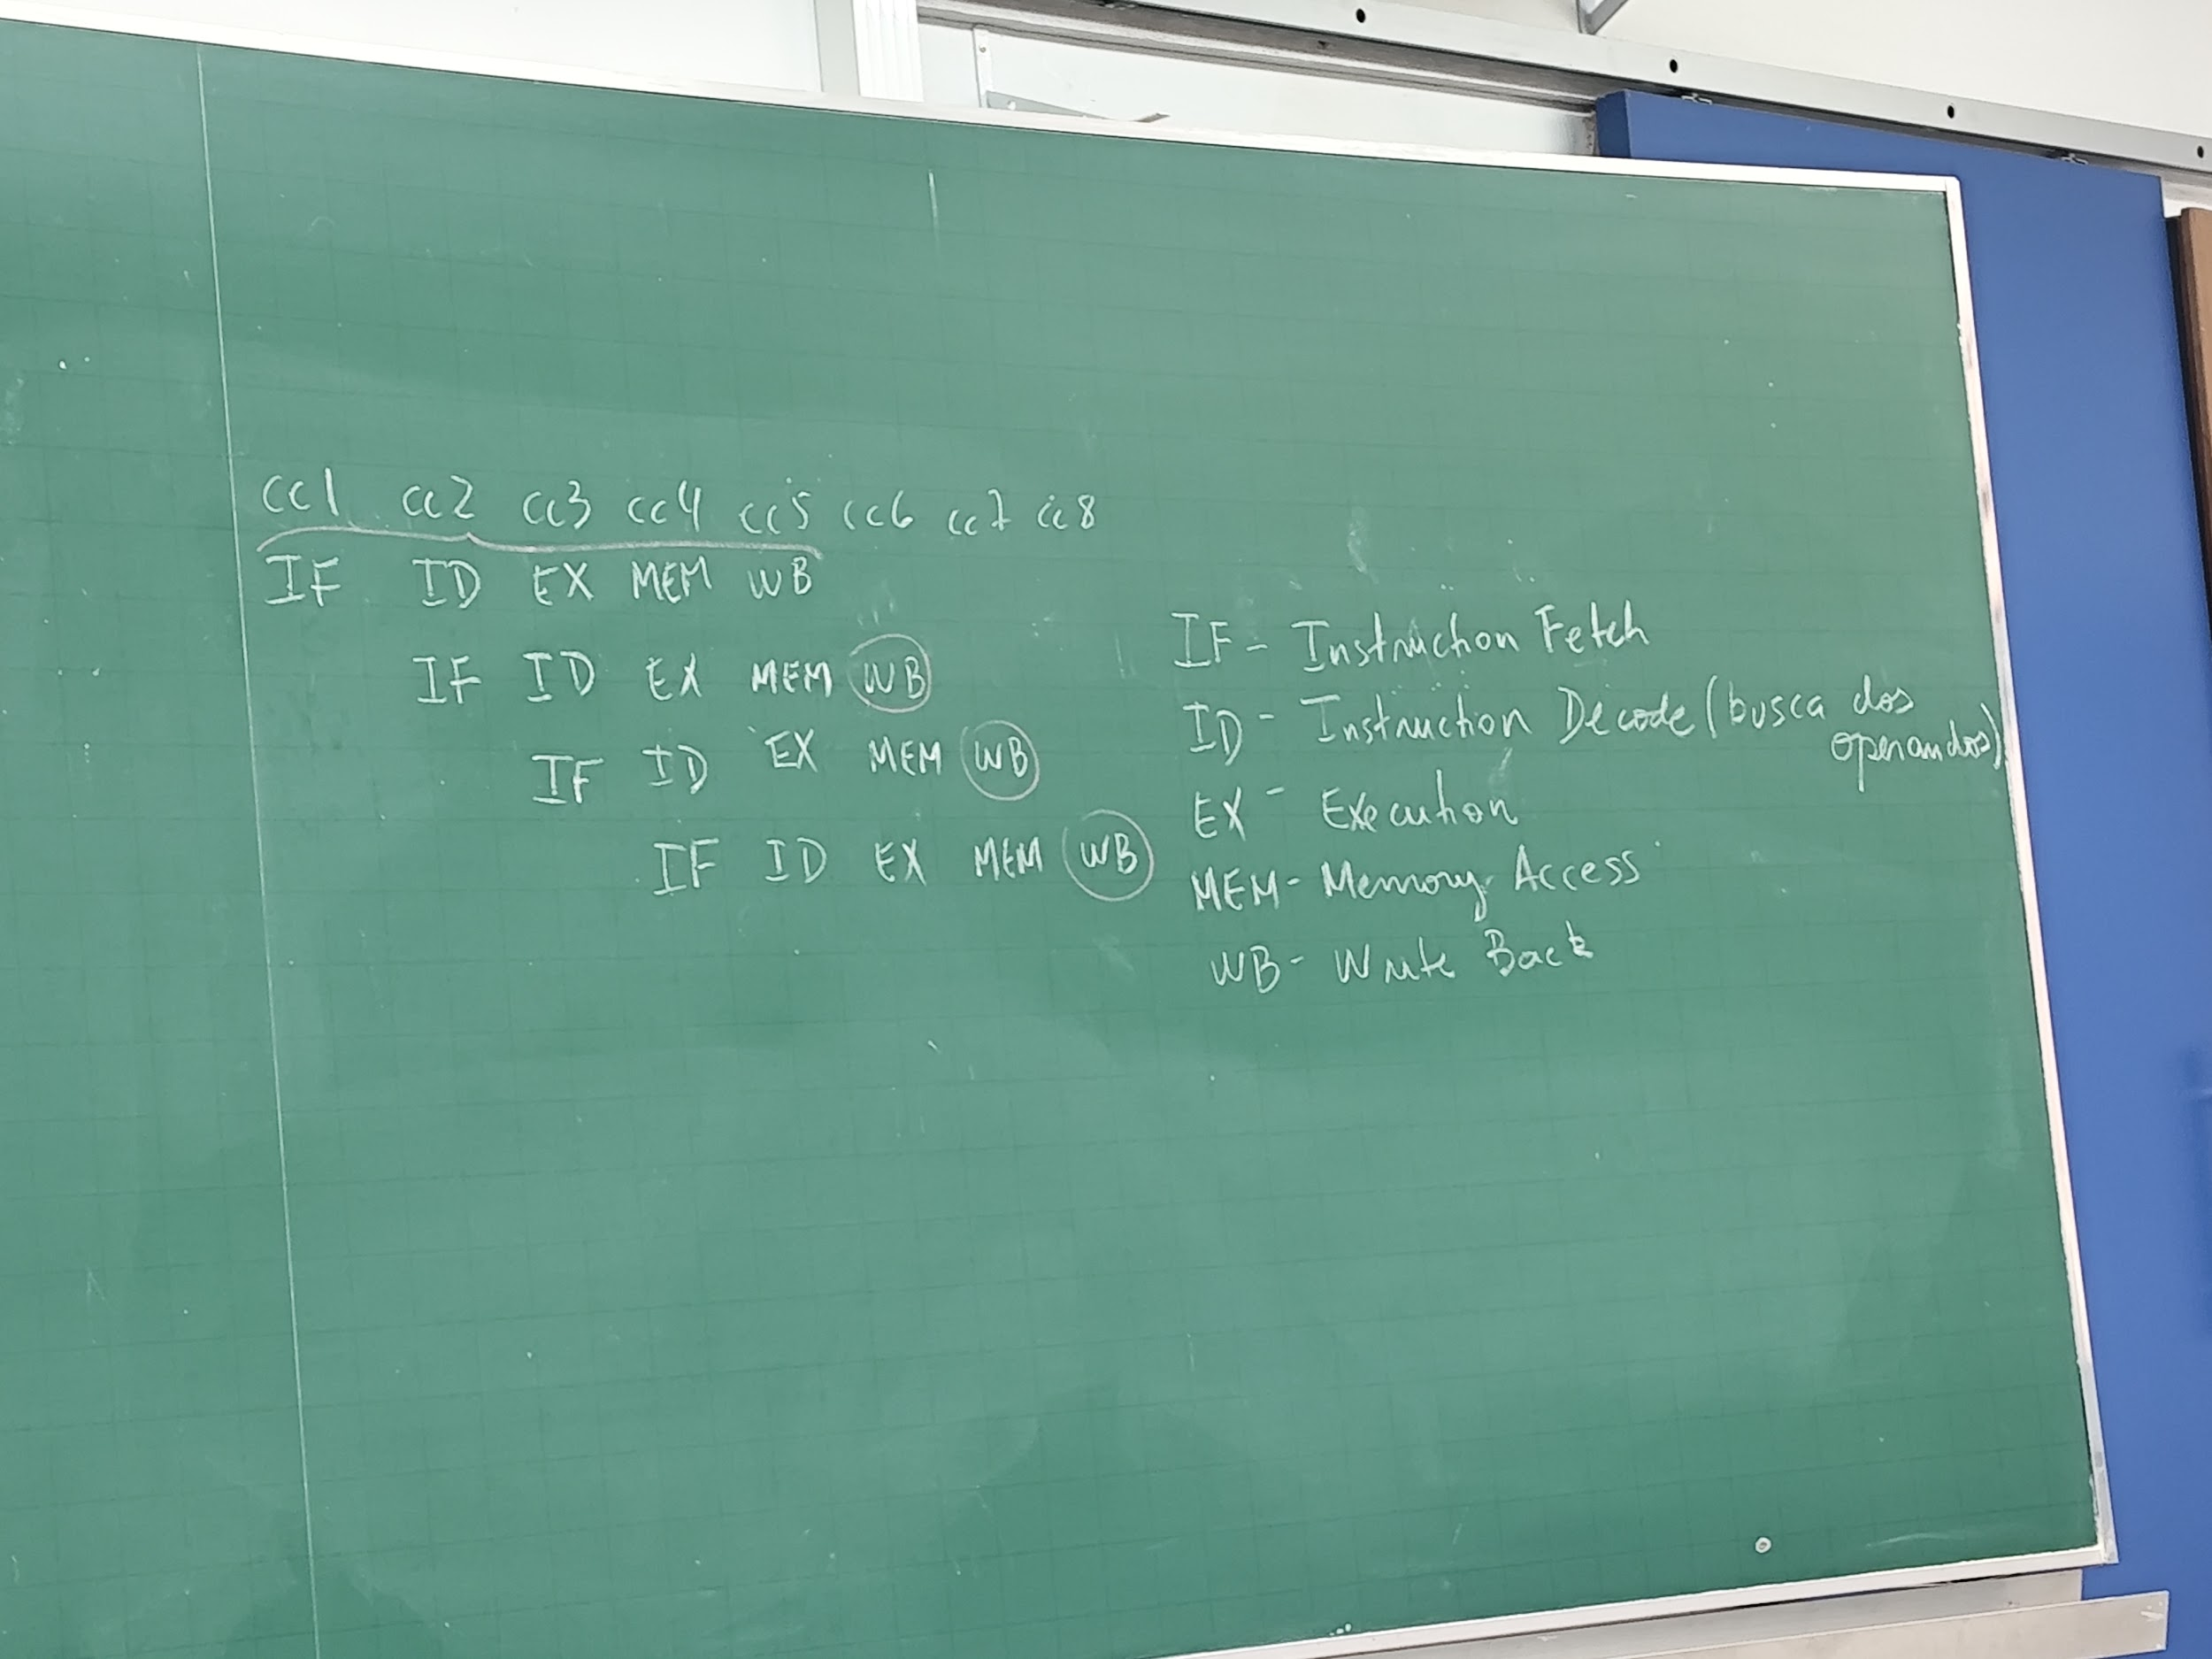 cc1 cc2 cc3 cc4 cc5 cc6 cc7 cc8
IF ID EX MEM WB
IF ID EX MEM WB
IF ID EX MEM WB
IF ID EX MEM WB
IF - Instruction Fetch
ID - Instruction Decode (busca dos
operandos)
EX - Execution
MEM - Memory Access
WB - Write Back